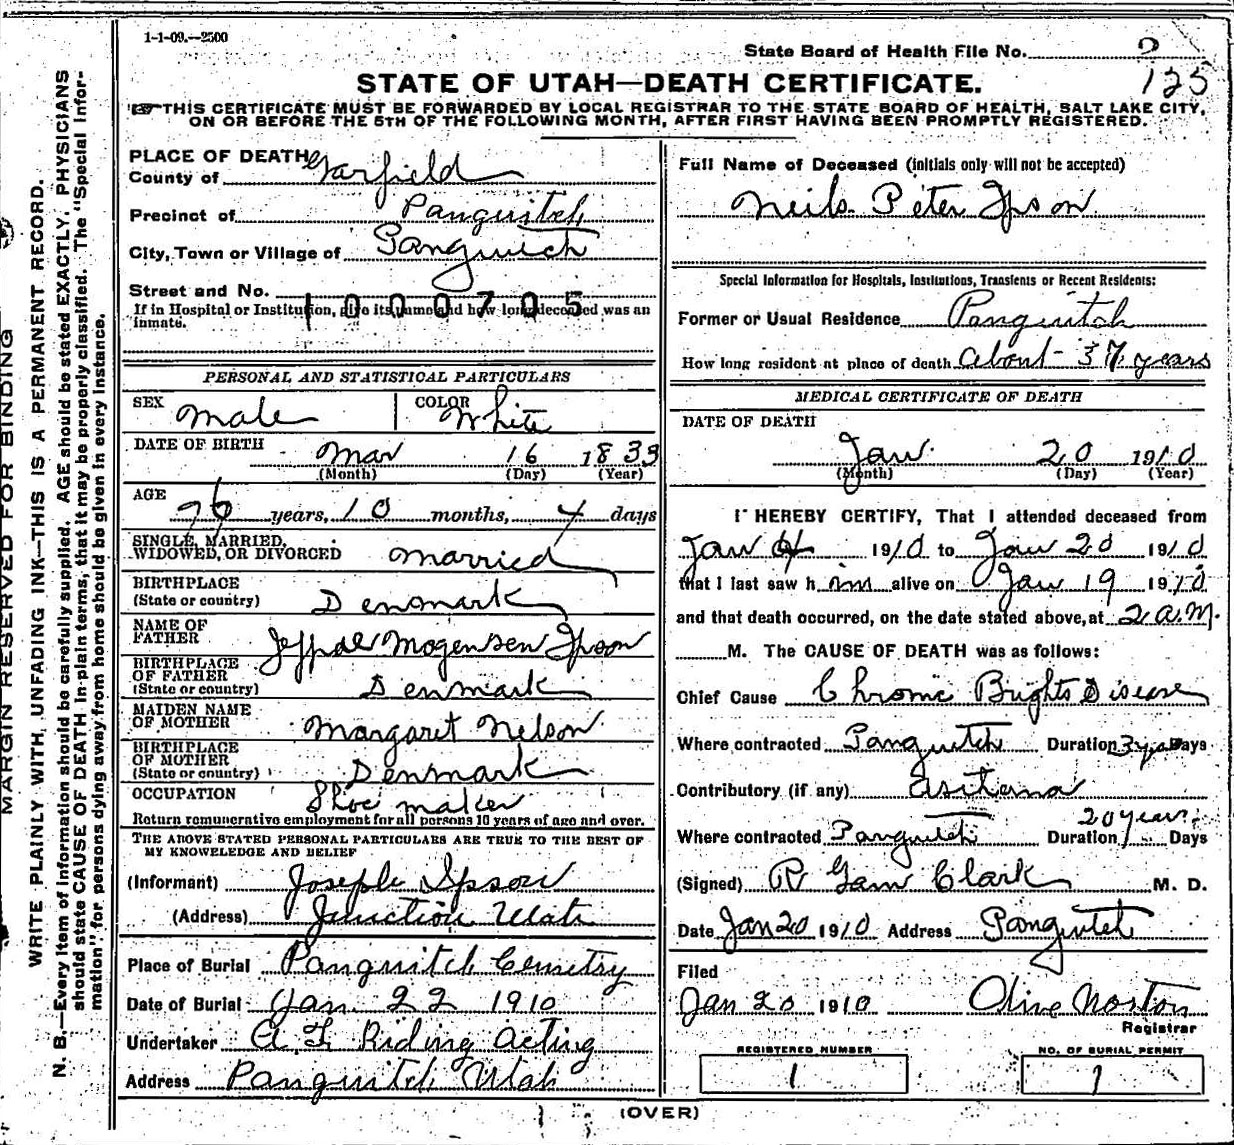 1-1-09.—2500
State Board of Health File No. 2
125
STATE OF UTAH—DEATH CERTIFICATE.
THIS CERTIFICATE MUST BE FORWARDED BY LOCAL REGISTRAR TO THE STATE BOARD OF HEALTH, SALT LAKE CITY,
ON OR BEFORE THE 5TH OF THE FOLLOWING MONTH, AFTER FIRST HAVING BEEN PROMPTLY REGISTERED.
MARGIN RESERVED FOR BINDING
WRITE PLAINLY WITH UNFADING INK—THIS IS A PERMANENT RECORD.
N. B.—Every item of information should be carefully supplied. AGE should be stated EXACTLY. PHYSICIANS
should state CAUSE OF DEATH in plain terms, that it may be properly classified. The "Special Infor-
mation" for persons dying away from home should be given in every instance.
PLACE OF DEATH
County of Garfield
Precinct of Panguitch
City, Town or Village of Panguitch
Street and No.
1000705
If in Hospital or Institution, give its name and how long deceased was an
inmate.
PERSONAL AND STATISTICAL PARTICULARS
SEX male COLOR White
DATE OF BIRTH Mar 16 1833
(Month) (Day) (Year)
AGE
76 years, 10 months, 4 days
SINGLE, MARRIED,
WIDOWED, OR DIVORCED married
BIRTHPLACE
(State or country) Densmark
NAME OF
FATHER Jeppae Mogensen Ipson
BIRTHPLACE
OF FATHER
(State or country) Denmark
MAIDEN NAME
OF MOTHER Margaret Nelson
BIRTHPLACE
OF MOTHER
(State or country) Denmark
OCCUPATION Shoe maker
Return remunerative employment for all persons 10 years of age and over.
THE ABOVE STATED PERSONAL PARTICULARS ARE TRUE TO THE BEST OF
MY KNOWLEDGE AND BELIEF
(Informant) Joseph Ipson
(Address) Junction Utah
Place of Burial Panguitch Cemetry
Date of Burial Jan. 22 1910
Undertaker A F Riding Acting
Address Panguitch Utah
Full Name of Deceased (initials only will not be accepted)
Neils Peter Ipson
Special Information for Hospitals, Institutions, Transients or Recent Residents:
Former or Usual Residence Panguitch
How long resident at place of death about 37 years
MEDICAL CERTIFICATE OF DEATH
DATE OF DEATH
Jan 20 1910
(Month) (Day) (Year)
I HEREBY CERTIFY, That I attended deceased from
Jan 1910 to Jan 20 1910
that I last saw him alive on Jan 19 1910
and that death occurred, on the date stated above, at 2 A.M.
M. The CAUSE OF DEATH was as follows:
Chief Cause Chronic Brights Disease
Where contracted Panguitch Duration 3 yrs Days
Contributory (if any) Asitema
Where contracted Panguitch Duration 20 years Days
(Signed) R Garn Clark M. D.
Date Jan 20 1910 Address Panguitch
Filed
Jan 20 1910 Olive Norton
Registrar
REGISTERED NUMBER
1
NO. OF BURIAL PERMIT
1
(OVER)